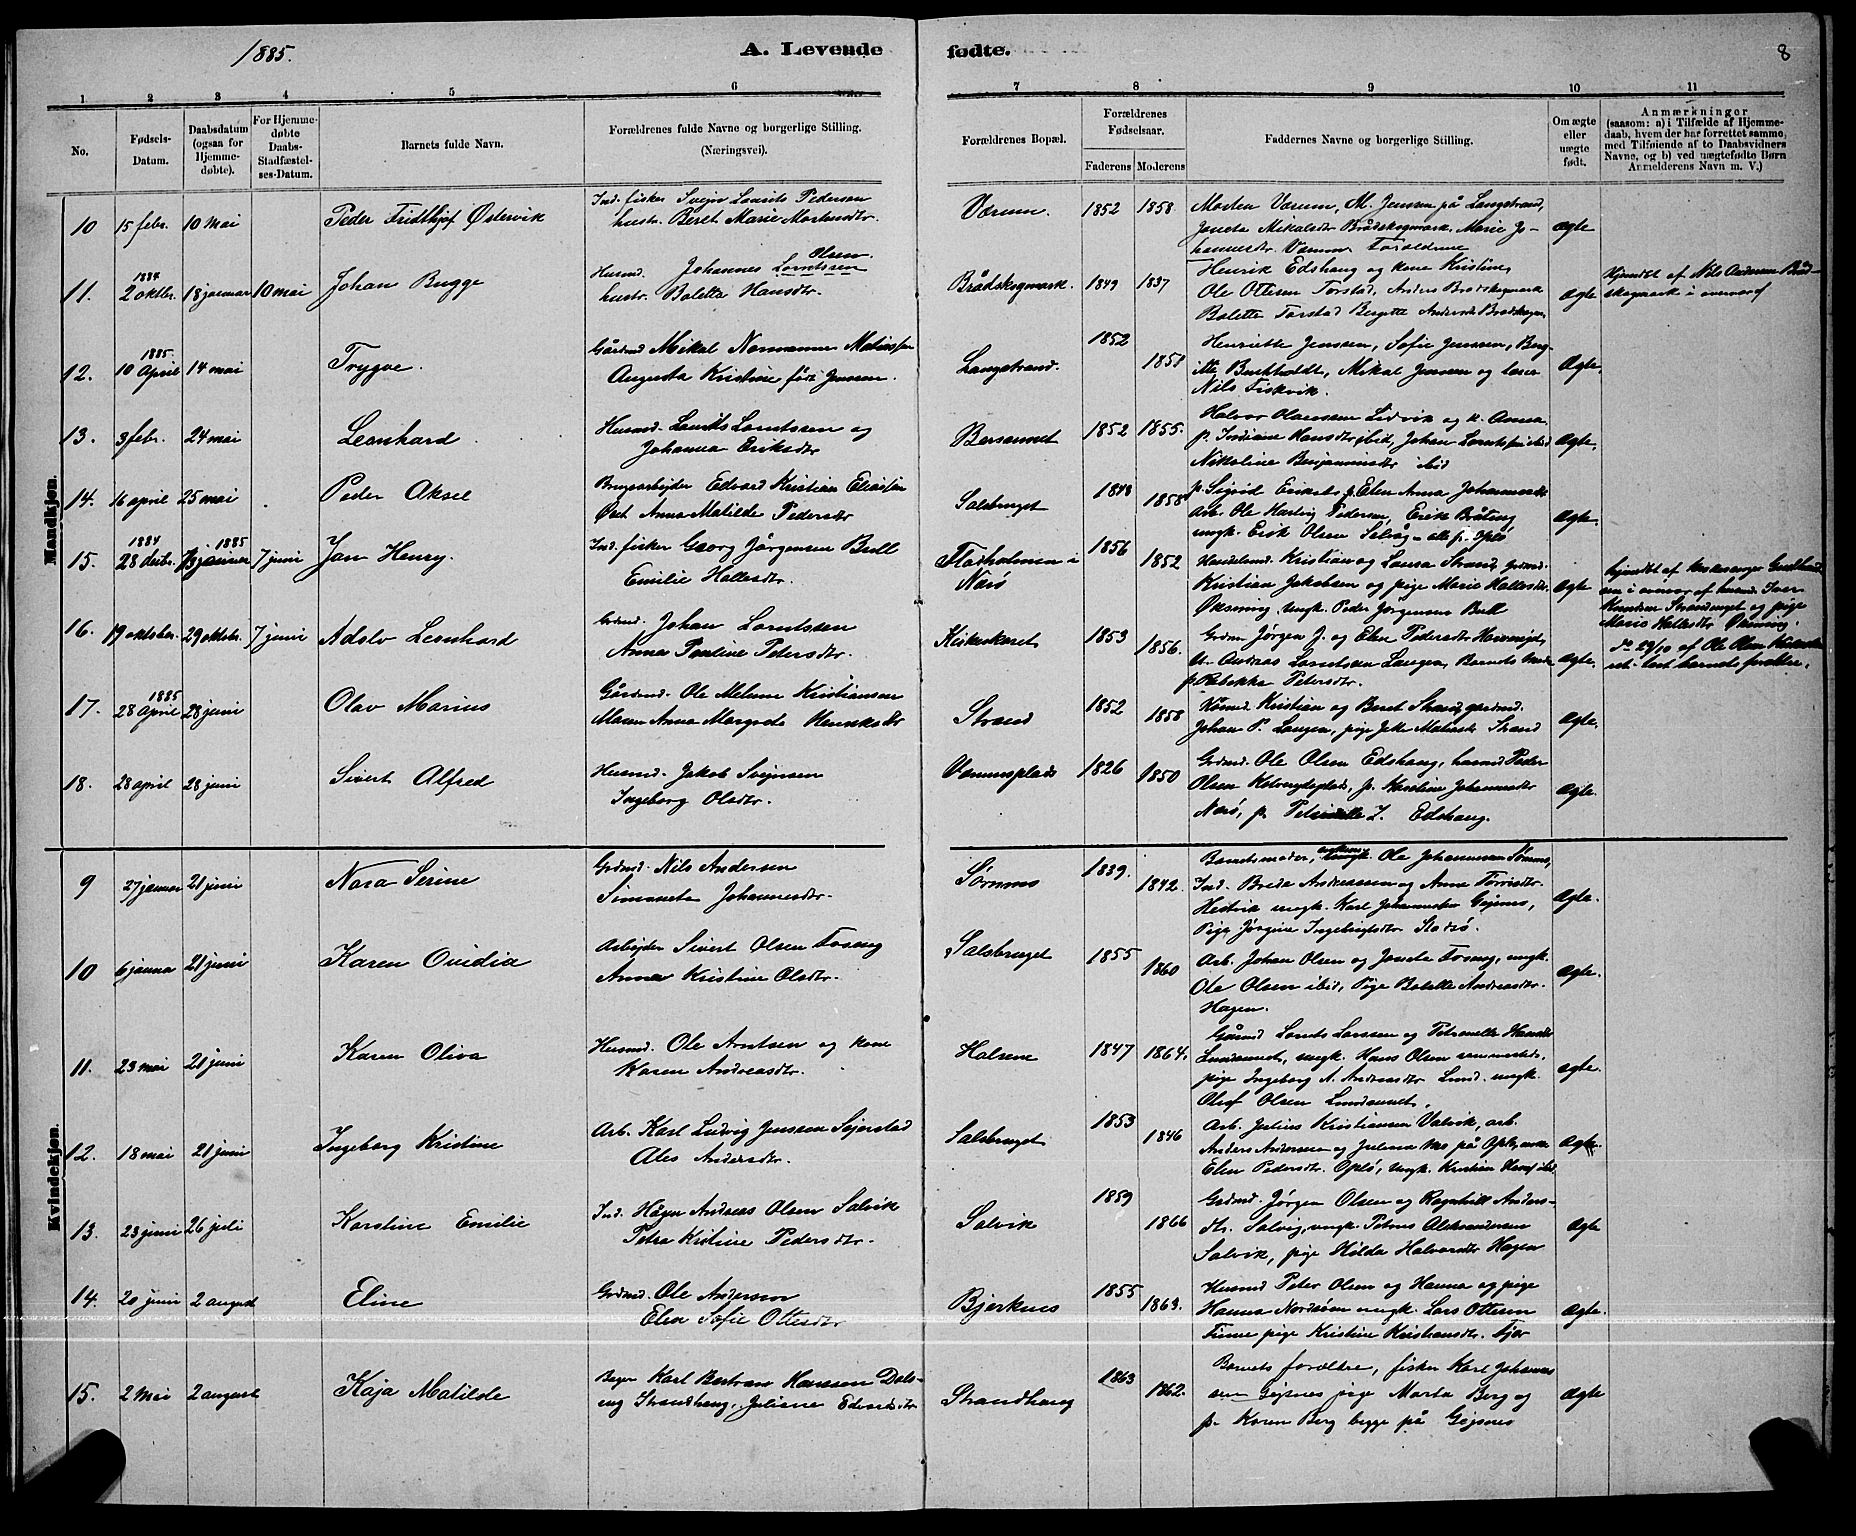 1885.
A. Levende fødte.
8
1 2 3 4 5 6 7 8 9 10 11
No.
Fødsels-Datum.
Daabsdatum (ogsaa for Hjemmedøbte).
For Hjemmedøbte Daabs-Stadfæstelses-Datum.
Barnets fulde Navn.
Forældrenes fulde Navne og borgerlige Stilling. (Næringsvei).
Forældrenes Bopæl.
Forældrenes Fødselsaar.
Faderens Moderens
Faddernes Navne og borgerlige Stilling.
Om ægte eller uægte født.
Anmærkninger
(saasom: a) i Tilfælde af Hjemmedaab, hvem der har forrettet samme, med Tilføiende af to Daabsvidners Navne, og b) ved uægtefødte Børn Anmelderens Navn m. V.)
Mandkjøn.
10 15 febr. 10 mai Peder Fridthjof Østervik
Ind. fisker Svejn Lourits Pedersen
hustr. Beret Marie Mortensdtr.
Værum. 1852 1858
Morten Værum, M. Jenssen på Langstrand,
Joneta Mikalsdtr Brådskogmark, Marie Jo-
hannesdtr. Værum Forældrene
ægte
11. 1884 2 oktbr. 18 januar 10 mai Johan Bugge
Husmd. Johannes Lorntssen Olsen.
hustr. Boletta Hansdtr.
Brådskogmark. 1849 1837
Henrik Edshaug og kone Kristine,
Ole Ottesen Torstad, Anders Brodskogmark
Bolette Torstad Bergitte Andersd. Brodskogm
ægte
Hjemdøbt af Nils Andersen Brod-
skogmark i overvær af
12. 1885. 10 April 14 mai Trygve.
Gårdmd Mikal Normann Matiassen
Augusta Kristine født Jenssen.
Langstrand. 1852 1858
Henriette Jenssen, Sofie Jenssen, Berg-
itte Bertholdt, Mikal Jenssen og lærer
Nils Fiskvik.
Ægte.
13. 3 febr. 24 mai Leonhard
Husmd. Laurits Lorntssen og
Johanna Eriksdtr
Bersamnet 1852 1855.
Halvor Olaussen Lidvik og k. Anna
p. Hansdtr ibid, Johan Lorntssen ibid
Nikoline Benjaminsdtr ibid
ægte.
14. 16 april 25 mai Peder Aksel
Brugsarbejder Edvard Kristian Eliassen
Anna Matilde Pedersdtr
Salsbruget 1848 1858
p. Sigrid Eriksd. p. Elen Anna Johannesdtr
arb. Ole Hartvig Pedersen, Erik Bråting,
ungk. Erik Olsen Selvåg - alle p. Oplø
ægte.
15. 1884 28 decbr. 1885 januar 7 juni Jon Henry.
Ind. fisker Georg Jørgensen Bull
Emilie Hallesdtr.
Flosholmen i Nærø 1856 1852
Handelsmd. Kristian og Laura Strand, Grdmd.
Kristian Jakobsen og pige Marie Hallesdtr.
Økning, ungk. Peder Jørgensen Bull
ægte
Hjemdøbt af
i overvær af husmd. Iver
Knudsen Strandneset og pige
Marie Hallesdtr Økning.
16. 19 oktober. 29 oktbr. 7 juni Adolv Leonhard
Grdmd. Johan Lorntssen
Anna Pauline Petersdtr.
Kirkeskaret 1853 1856.
Grdm Jørgen J. og Elen Petersdtr
Andreas Lorntsen Langen, Barnets moder
p. Rebekka Petersdtr.
ægte.
do 29/10 af Ole Olsen
17. 1885 28 April 28 juni Olav Marius
Gårdmd. Ole Melum Kristiansen
Maren Anna Margrete Henriksdtr
Strand 1852 1858
Kristian og Beret Strand, gårdmd.
Johan P. Langen, pige Strand
ægte.
18. 28 april 28 juni Sivert Alfred
Husmd. Jakob Svejnsen
Ingeborg Olsdtr.
Værumsplads 1826 1850
Grdmd. Ole Olsen Edshaug, husmd Peder
Olsen p. Kristine Johannesdtr
Nærø, p. Petrnille J. Edshaug.
ægte.
Kvindekjøn.
9 27 januar 21 juni Nora Serine
Grdmd. Nils Andersen
Simoneta Johannesdtr.
Sørnnes 1839. 1842.
Barnets moder, Ole Johannesen Sømnes,
Ind. Breda Andreassen og Anna
Hestvik ungk. Karl Johannessen Gejsnes,
Pige Jørgine Ingebrigtsdtr
ægte.
10 6 januar 21 juni Karen Ovidia
Arbejder Sivert Olsen Fosnug
Anna Kristine Olsdtr.
Salsbruget 1855 1860
Arb. Johan Olsen og Joneta Fosnug, ungk.
Ole Olsen ibid, Pige Bolette Andreasdtr.
Hagen.
ægte.
11. 23 mai 21 juni Karen Oliva
Husmd. Ole Arntsen og kone
Karen Andreasdtr.
Halsene 1847 1864.
Gårmd Lornts Larssen og Petronelle Hansdtr
Lundamnet, ungk. Hans Olsen sammesteds.
pige Ingeborg A. Andreasdtr Lund. ungk.
Oluf Olsen Lundamnet.
ægte.
12. 18 mai 21 juni Ingeborg Kristine
Arb. Karl Ludvig Jenssen Sejerstad
Ales Andersdtr.
Salsbruget 1853 1846
Arb. Julius Kristiansen Valvik, arb.
Anders Andersen og Juliana Moe på Oplø,
Elen Pedersdtr. Oplø, ungk. Kristian
ægte.
13. 23 juni 26 juli Karstine Emilie
Ind. Hågen Andreas Olsen Salvik
Petra Kristine Pedersdtr.
Salvik 1859 1866
Grdmd. Jørgen Olsen og Ragnhill Anders-
dtr. Salvig, ungk. Petrus Aleksandersen
Salvik, pige Hilda Halvorsdtr Hagen
ægte
14. 20 juni 2 august Eline
Grdmd. Ole Andersson
Elen Sofie Ottesdtr
Bjerknes 1855 1863.
Husmd Peter Olsen og Hanna og pige
Hanna ungk. Lars Ottesen
Finne pige Kristine Kristiansdtr.
ægte.
15. 2 Mai 2 august Kaja Matilde
Karl Bertran Hanssen Dals-
eng Strandhaug, Juliane Edvardsdtr
Strandhaug 1863 1862.
Barnets forældre, fisker Karl Johannes
sen Gejsnes pige Marta Berg og
p. Karen Berg begge på Gejsnes
ægte